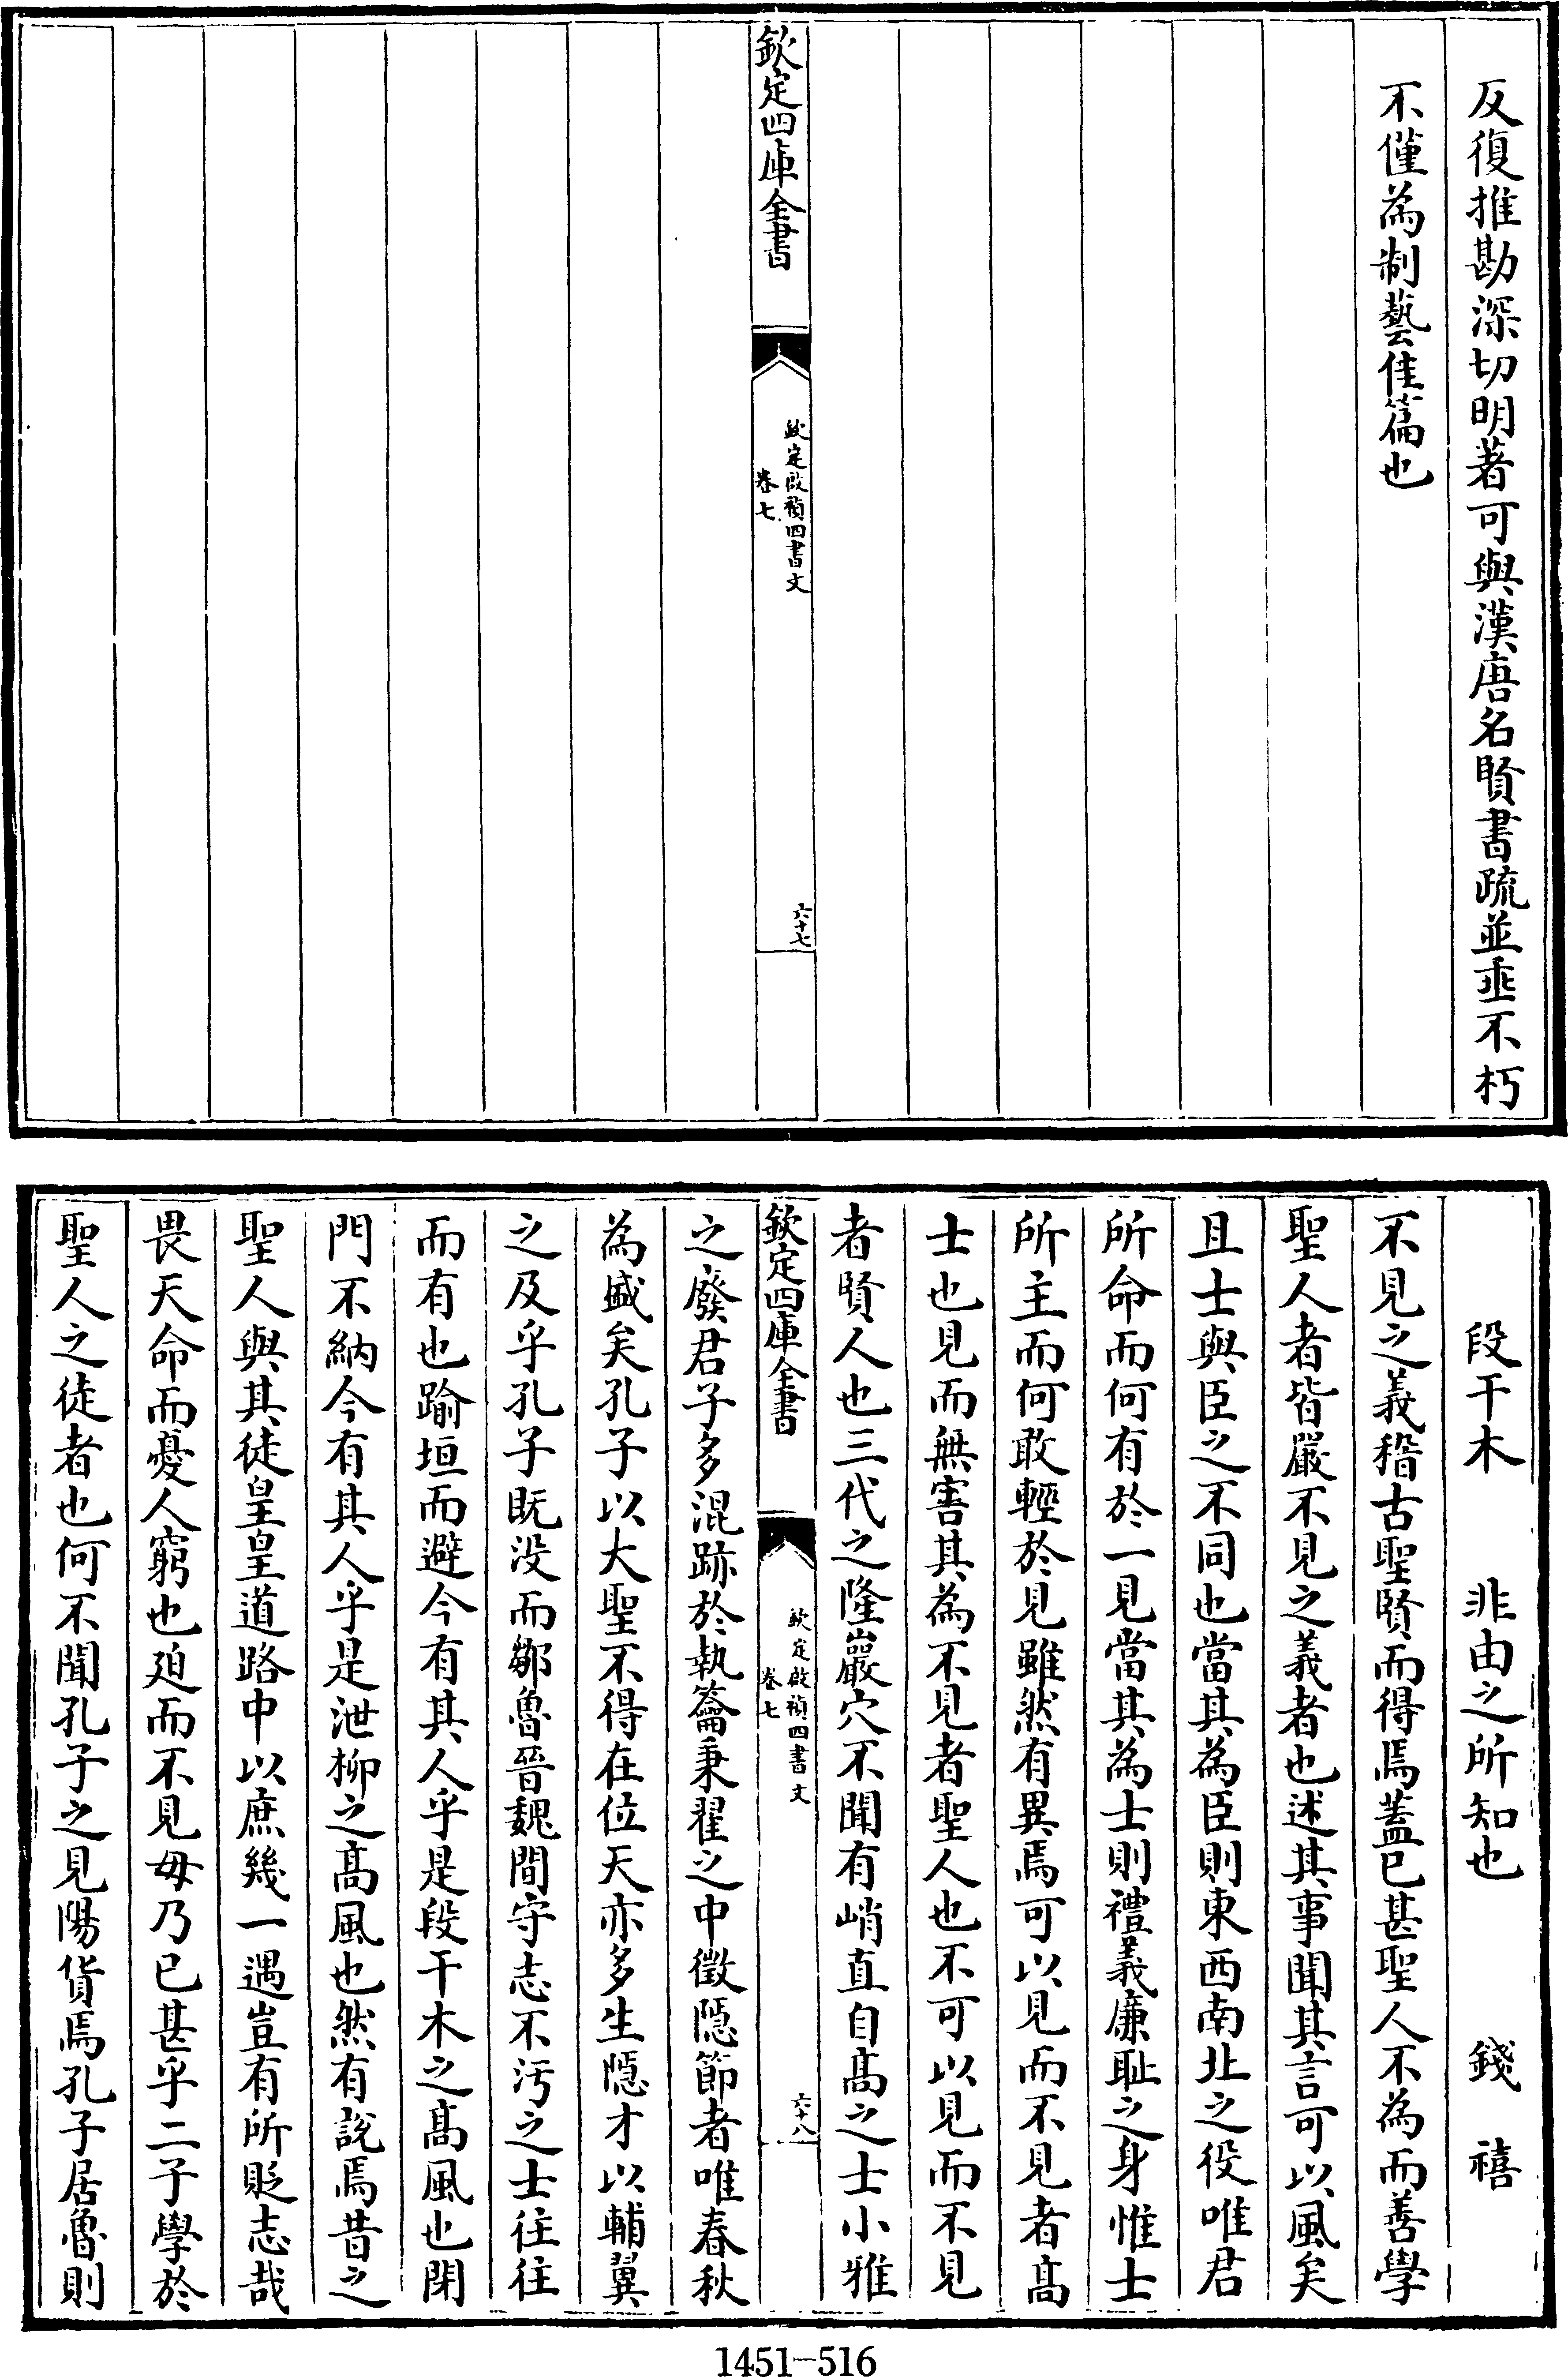 反復推勘深切明著可與漢唐名賢書疏並垂不朽
不僅為制藝佳篇也
欽定四庫全書
欽定啟禎四書文
卷七
六十七
段干木 非由之所知也 錢禧
不見之義稽古聖賢而得焉蓋已甚聖人不為而善學
聖人者皆嚴不見之義者也述其事聞其言可以風矣
且士與臣之不同也當其為臣則東西南北之役唯君
所命而何有於一見當其為士則禮義廉耻之身惟士
所主而何敢輕於見雖然有異焉可以見而不見者髙
士也見而無害其為不見者聖人也不可以見而不見
者賢人也三代之隆巖穴不聞有峭直自髙之士小雅
欽定四庫全書
欽定啟禎四書文
卷七
六十八
之廢君子多混跡於執籥秉翟之中徵隱節者唯春秋
為盛矣孔子以大聖不得在位天亦多生隱才以輔翼
之及乎孔子既没而鄒魯晉魏間守志不污之士往往
而有也踰垣而避今有其人乎是段干木之髙風也閉
門不納今有其人乎是泄柳之髙風也然有說焉昔之
聖人與其徒皇皇道路中以庶幾一遇豈有所貶志哉
畏天命而憂人窮也廹而不見毋乃已甚乎二子學於
聖人之徒者也何不聞孔子之見陽貨焉孔子居魯則
1451-516